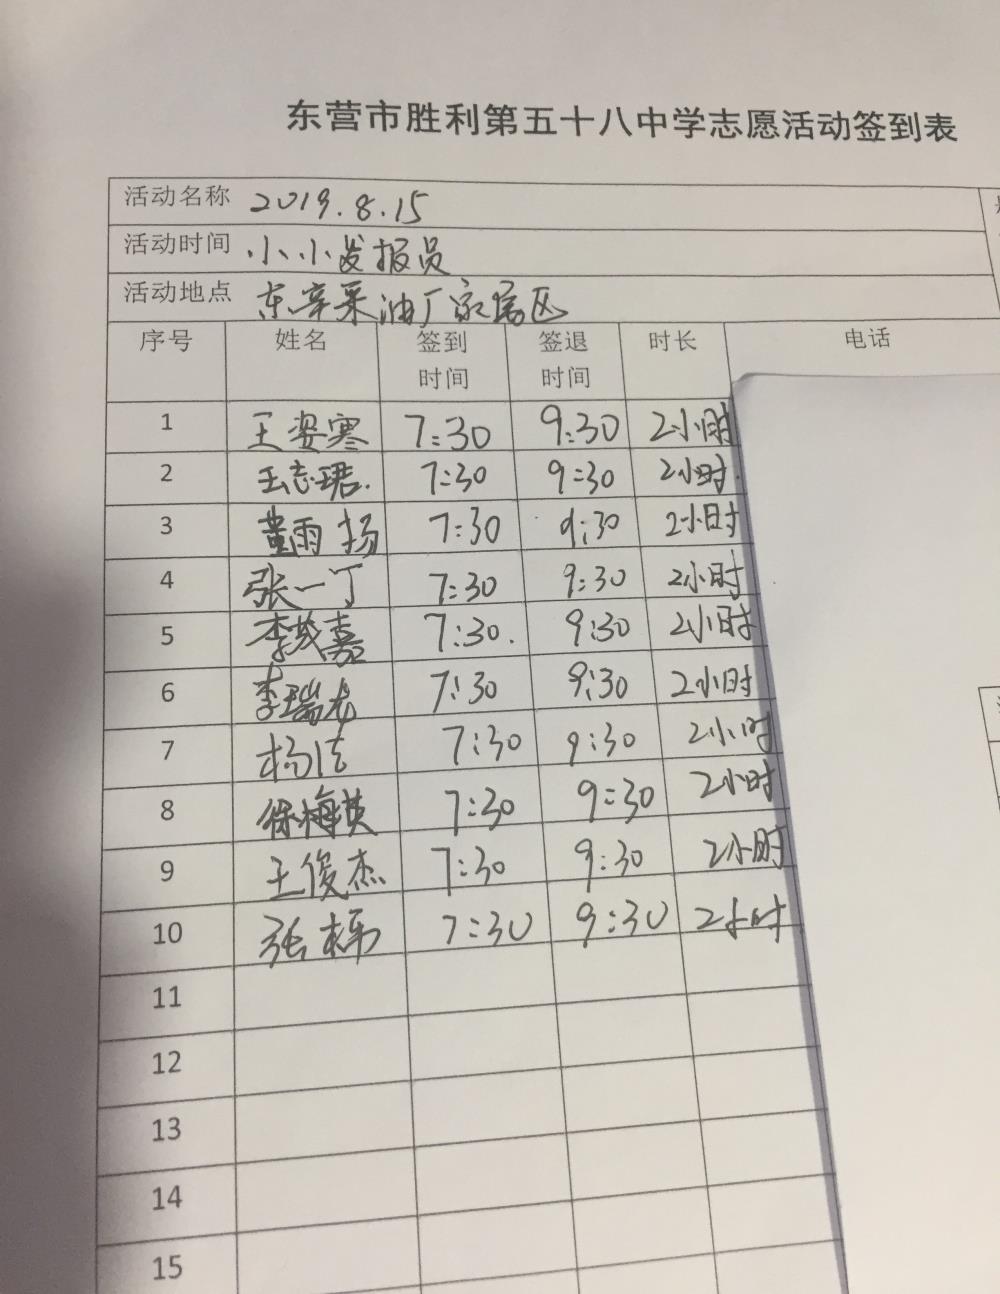 东营市胜利第五十八中学志愿活动签到表
活动名称 2019.8.15
活动时间 小小发报员
活动地点 东辛采油厂家属区
序号 姓名 签到时间 签退时间 时长 电话
1 王姿寒 7:30 9:30 2小时
2 王志珺 7:30 9:30 2小时
3 董雨扬 7:30 9:30 2小时
4 张一丁 7:30 9:30 2小时
5 李茂嘉 7:30 9:30 2小时
6 李瑞龙 7:30 9:30 2小时
7 杨洁 7:30 9:30 2小时
8 徐梅英 7:30 9:30 2小时
9 王俊杰 7:30 9:30 2小时
10 张栋 7:30 9:30 2小时
11
12
13
14
15